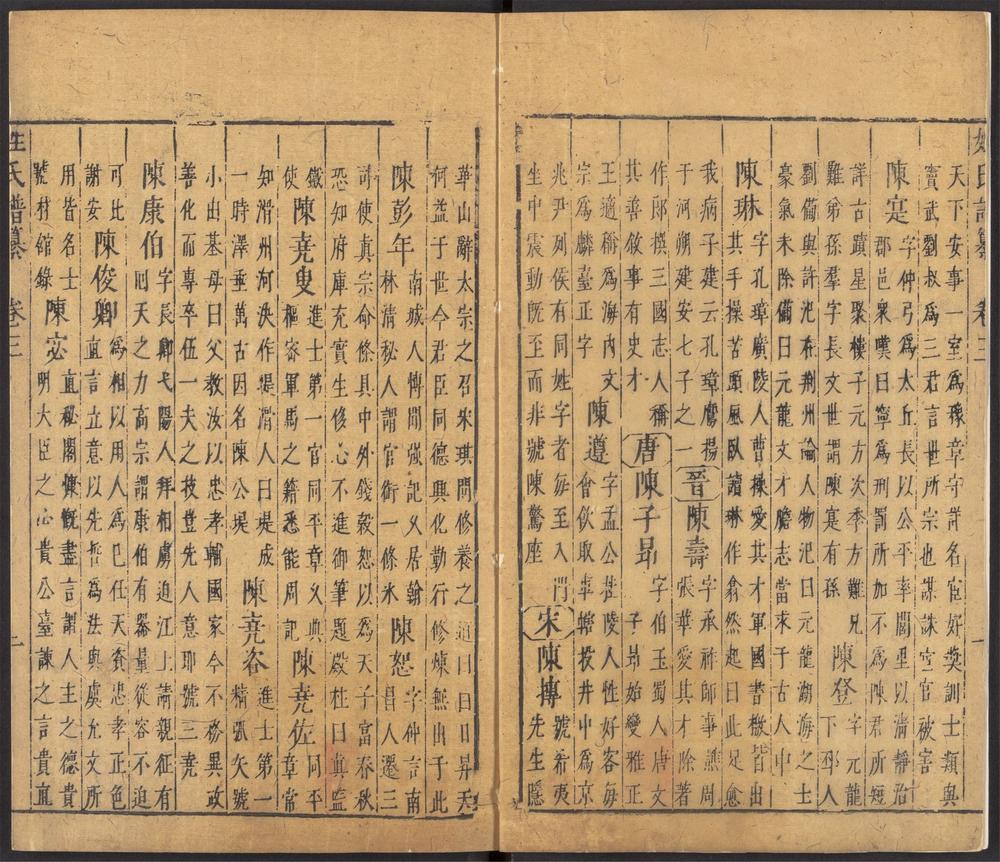 姓氏譜纂 卷三 一
天下安事一室爲豫章守許名宦好奬訓士類與
竇武劉叔爲三君言世所宗也謀誅宦官被害
陳寔 字仲弓爲太丘長以公平率閭里以清靜治
郡邑衆嘆曰寧爲刑罰所加不爲陳君所短
詳古蹟星聚樓子元方次季方難兄 陳登 字元龍
難弟孫羣字長文世謂陳寔有孫 下邳人
劉備與許汜在荆州論人物汜曰元龍湖海之士
豪氣未除備曰元龍文才膽志當求于古人中
陳琳 字孔璋廣陵人曹操愛其才軍國書檄皆出
其手操苦頭風臥讀琳作翕然起曰此足愈
我病子建云孔璋鷹揚 晉 陳壽 字承祚師事譙周
于河朔建安七子之一 張華愛其才除著
作郎撰三國志人稱 唐 陳子昂 字伯玉蜀人唐文
其善敘事有史才 子昂始變雅正
王適稱爲海内文 陳遵 字孟公杜陵人性好客每
宗爲麟臺正字 會飲取車轄投井中爲京
兆尹列侯有同姓字者每至入門 宋 陳摶 號希夷
坐中震動旣至而非號陳驚座 先生隱
華山辭太宗之召宋琪問修養之道曰白日昇天
何益于世今君臣同德興化勤行修煉無出于此
陳彭年 南城人博聞強記又居翰 陳恕 字仲言南
林清秘人謂官銜一條氷 昌人遷三
司使真宗命條具中外錢穀恕以爲天子富春秋
恐知府庫充實生侈心不進御筆題殿柱曰真鹽
鐵 陳堯叟 進士第一官同平章又典 陳堯佐 同平
使 樞密軍馬之籍悉能周記 章常
知滑州河決作堤滑人曰堤成 陳堯咨 進士第一
一時澤垂萬古因名陳公堤 精弧矢號
小由基母曰父教汝以忠孝輔國家今不務異政
善化而專卒伍一夫之技豈先人意耶號三堯
陳康伯 字長卿弋陽人拜相虜迫江上請親征有
囘天之力高宗謂康伯有器量從容不迫
可比 陳俊卿 爲相以用人爲己任天資忠孝正色
謝安 直言立意以先哲爲法與虞允文所
用皆名士 陳宓 直秘閣慷慨盡言謂人主之德貴
號材館錄 明大臣之心貴公臺諫之言貴直
姓氏譜纂 卷三 一